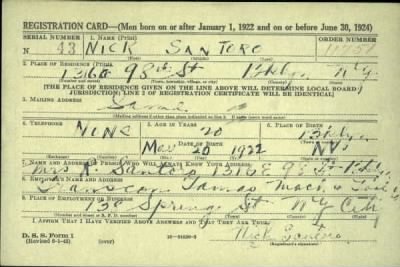 REGISTRATION CARD—(Men born on or after January 1, 1922 and on or before June 30, 1924)
SERIAL NUMBER 1. NAME (Print) ORDER NUMBER
N 43 NICK SANTORO
(First) (Middle) (Last)
2. PLACE OF RESIDENCE (Print)
1316 E 98th St Bklyn N.Y.
(Number and street) (Town, township, village, or city) (County) (State)
[THE PLACE OF RESIDENCE GIVEN ON THE LINE ABOVE WILL DETERMINE LOCAL BOARD
JURISDICTION; LINE 2 OF REGISTRATION CERTIFICATE WILL BE IDENTICAL]
3. MAILING ADDRESS
Same
[Mailing address if other than place indicated on line 2. If same insert word same]
4. TELEPHONE 5. AGE IN YEARS 6. PLACE OF BIRTH
NINE 20 Bklyn
DATE OF BIRTH
Mar 20 1922 NY
(Exchange) (Number) (Mo.) (Day) (Yr.) (State or country)
7. NAME AND ADDRESS OF PERSON WHO WILL ALWAYS KNOW YOUR ADDRESS
Mrs R. Santoro 1316 E 98 St Bklyn
8. EMPLOYER'S NAME AND ADDRESS
Mach & Tool
9. PLACE OF EMPLOYMENT OR BUSINESS
138 Spring St NY City
(Number and street or R. F. D. number) (Town) (County) (State)
I AFFIRM THAT I HAVE VERIFIED ABOVE ANSWERS AND THAT THEY ARE TRUE.
D. S. S. Form 1
(Revised 6-1-42) Nick Santoro
(Registrant's signature)